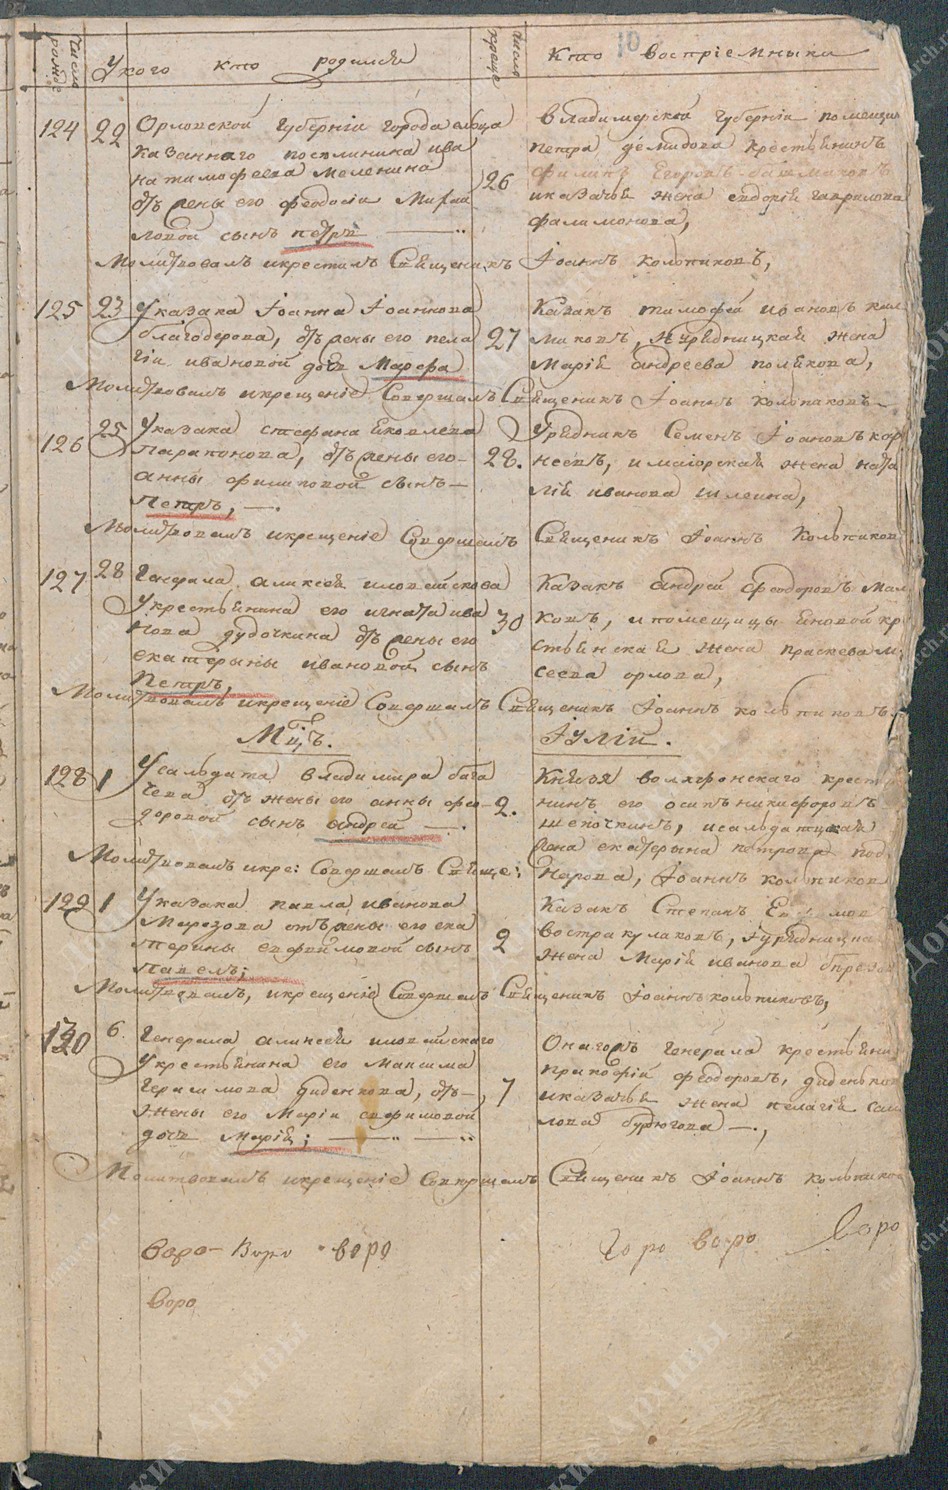 10
число рожде
У кого кто родился
число креще
Кто восприемники
124 22 Орловской Губернiи города ельца
казеннаго поселянина ива
на тимофеева меленина
отъ жены его феодосiи Михаи
ловой сынъ петръ
26
владимерской Губернiи помещика
петра демидова крестьянинъ
филипъ Егоровъ
и казачья жена евдокiя гаврилова
филимонова,
Молитвовалъ и крестилъ Священникъ Iоаннъ Колпиковъ,
125 23 У казака Iоанна Iоаннова
благодерова, отъ жены его пела
гiи ивановой дочь Марфа
27
Казакъ тимофей ивановъ кли
миковъ, и Урядницкая жена
Марiя андреева полякова,
Молитвовалъ и крещенiе Совершалъ Священникъ Iоаннъ колпаковъ
126 25 У казака стефана Яковлева
Парапонова, отъ жены его
анны филиповой сынъ
Петръ,
28.
Урядникъ Семенъ Iоановъ кор
неевъ, и маiорская жена ната
лiя иванова шлеина,
Молитвовалъ и крещенiе Совершалъ Священникъ Iоаннъ Колпиков
127 28 Генерала алексея иловайскова
У крестьянина его игната ива
нова дудочкина отъ жены его
екатерины ивановой сынъ
Петръ,
30
Казакъ андрей феодоровъ Мал
ковъ, и помещицы яновой кр
стьянская жена праскева Ми
сеева орлова,
Молитвовалъ и крещенiе Совершалъ Священникъ Iоаннъ колпиковъ
Мцъ.
Iулiй.
128 1 У салдата владимира бога
чева отъ жены его анны фео
доровой сынъ андрей
2.
Князя волхонскаго крест
нинъ его осипъ никифоровъ
шепочкинъ, и салдатцкая
жона екатерына петрова под
Молитвовалъ и кре: Совершалъ Свяще: нарова, Iоаннъ колпиков
129 1 У казака павла иванова
Марозова отъ жены его ека
терины евфимовой сынъ
Павелъ;
2
Казакъ Степанъ
вострикулаковъ, и урядницка
жена Марiя иванова
Молитвовалъ, и крещенiе Совершалъ Священникъ Iоаннъ колпиковъ,
130 6 Генерала алексея иловайскаго
У крестьянина его Максима
Герасимова диденкова, отъ
жены его Марiи ефимовой
дочь Марiя;
7
Онагожъ Генерала крестьянин
прокофiй феодоровъ, диденьков
и казачья жена пелагiя сам
лова бурюгова
Молитвовалъ и крещенiе Совершалъ Священникъ Iоаннъ колпиков
воро Воро воро
воро воро Воро
воро